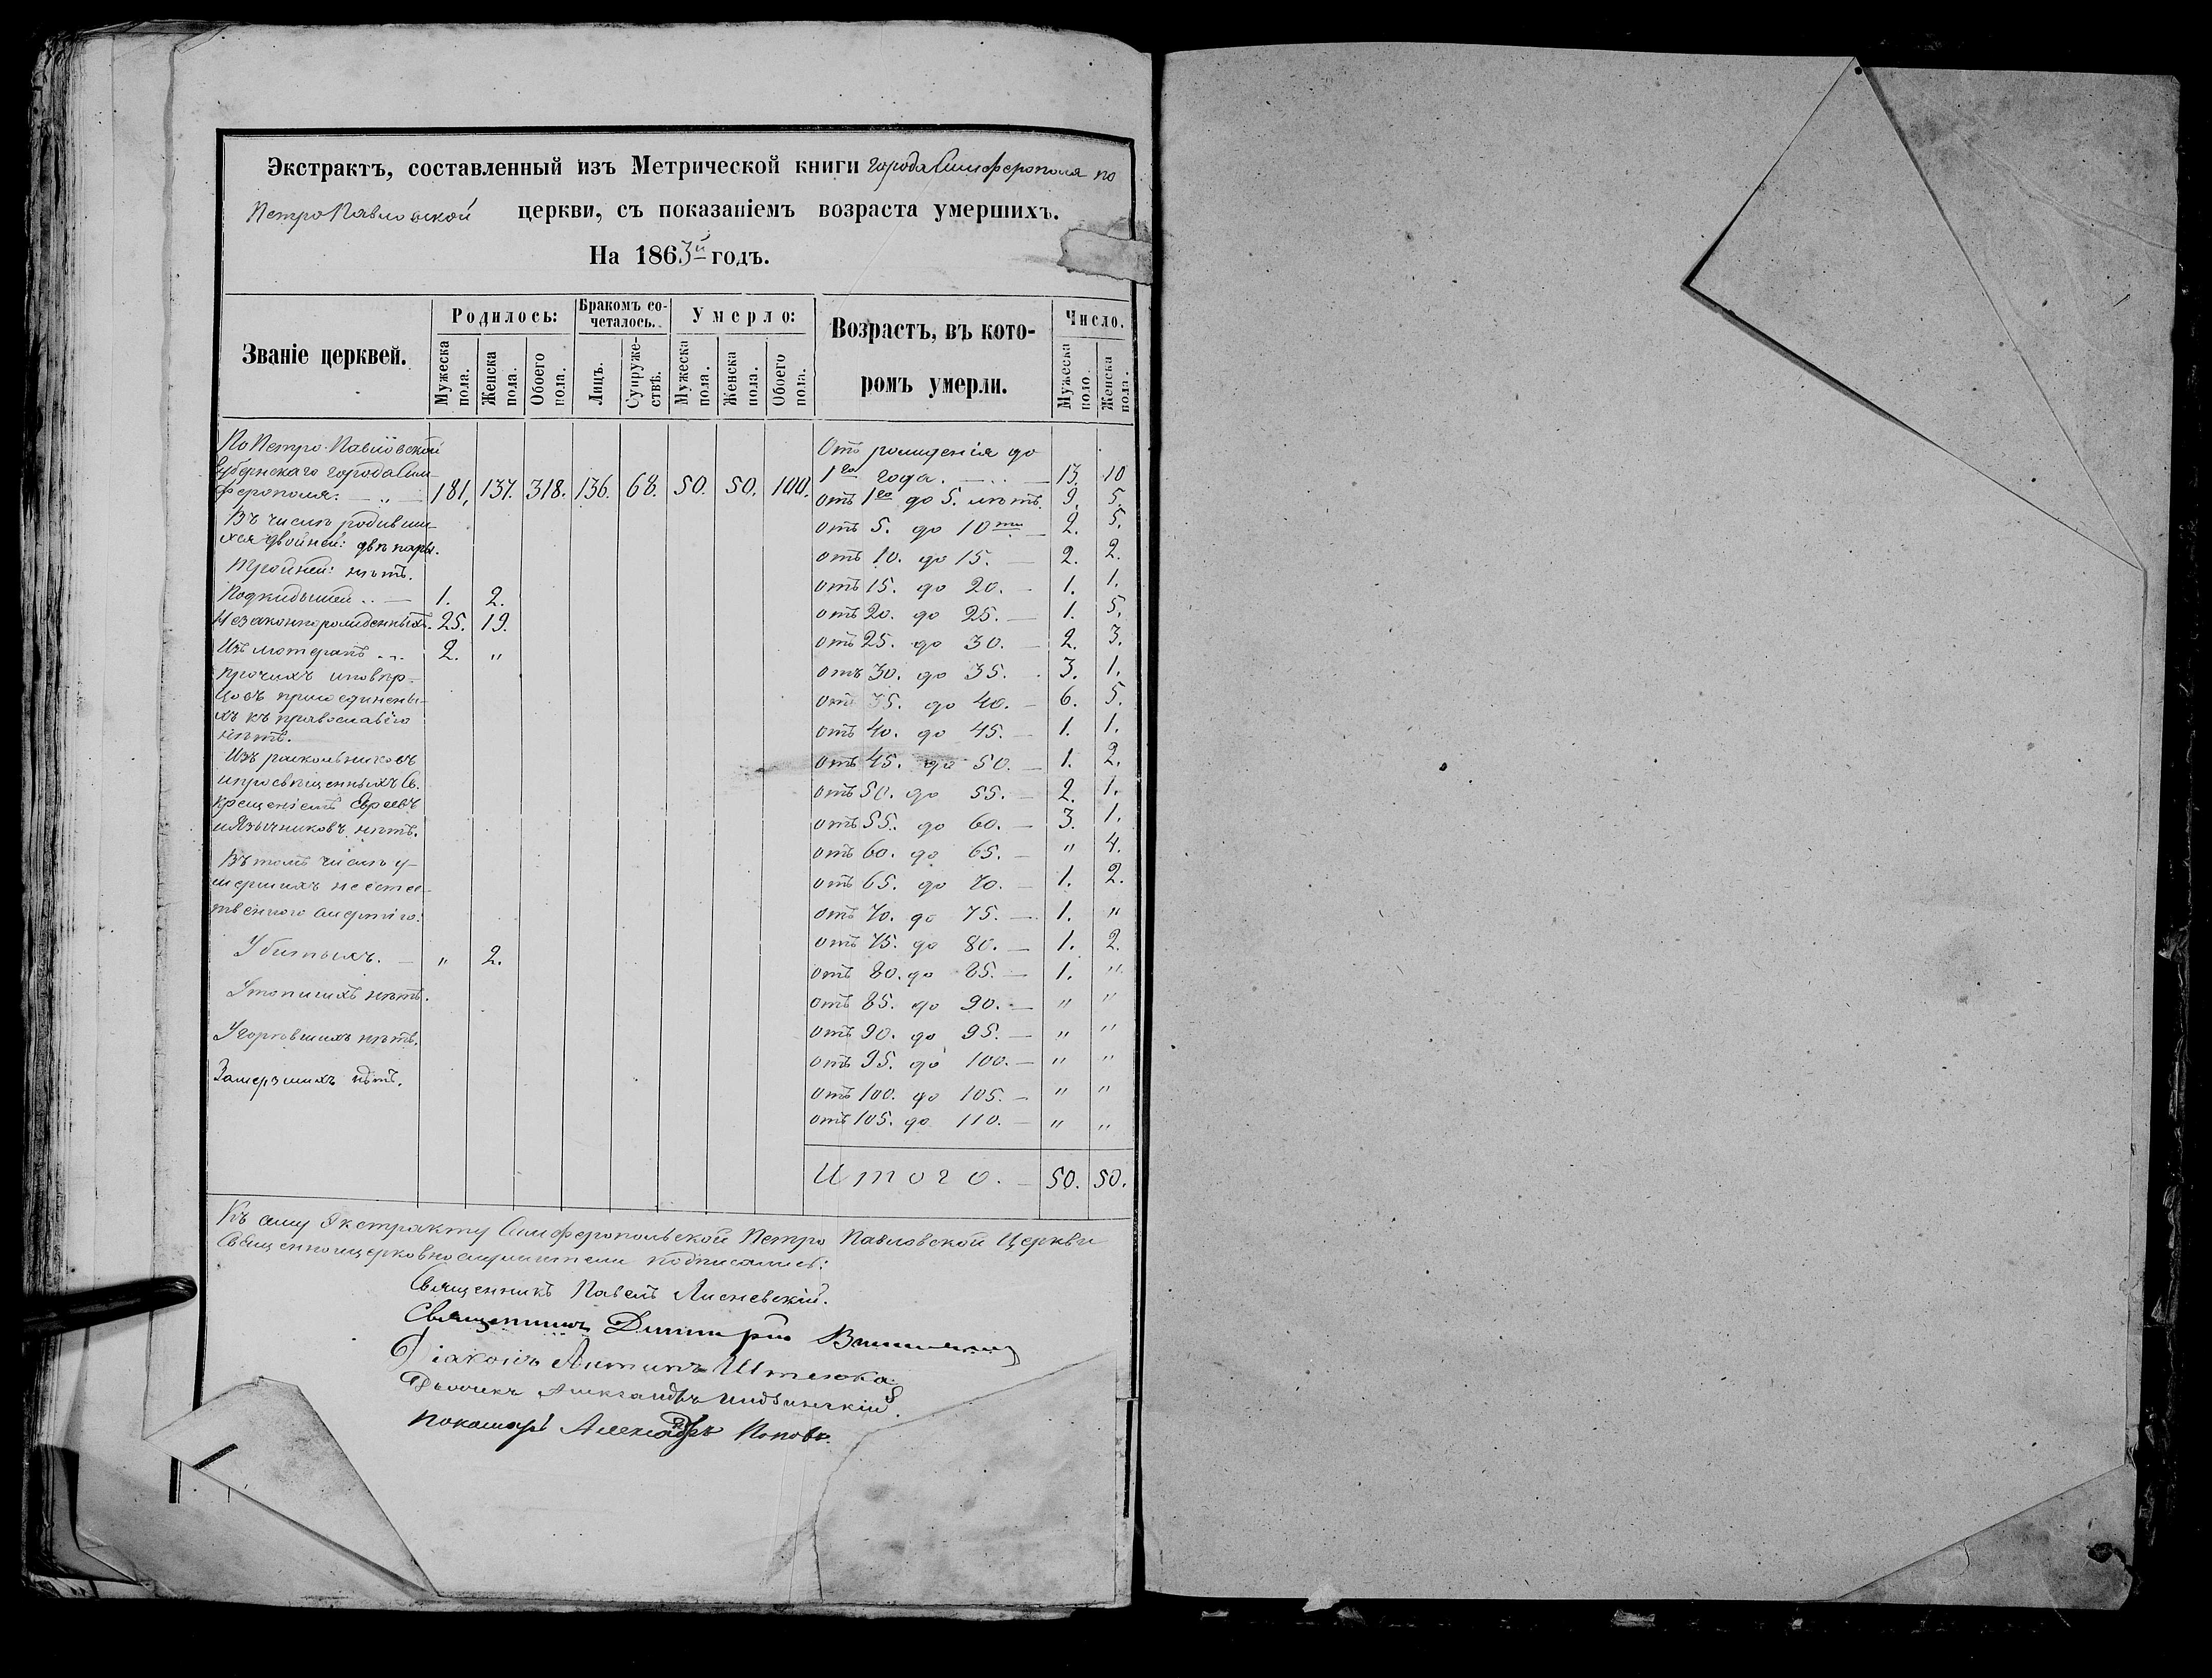 Экстрактъ, составленный изъ Метрической книги города Симферополя по
Петро Павловской церкви, съ показаніемъ возраста умершихъ.
На 1863й годъ.
Званіе церквей.
Родилось:
Бракомъ со-
четалось.
Умерло:
Возрастъ, въ кото-
ромъ умерли.
Число.
Мужеска пола.
Женска пола.
Обоего пола.
Лицъ.
Супруже-
ствъ.
Мужеска пола.
Женска пола.
Обоего пола.
Мужеска поло.
Женска пола.
По Петро-Павловской
Губернскаго города Сим-
ферополя. — „ — 181. 137. 318. 136. 68. 50. 50. 100.
Въ числѣ родивши-
хся двойней: двѣ пары.
Тройней: нѣтъ.
Подкидышей .. — 1. 2.
Незаконнорожденныхъ. 25. 19.
Изъ лютеранъ .. 2. „
Прочихъ иновѣр-
цовъ присоединены-
хъ къ православію
нѣтъ.
Изъ раскольниковъ
и просвѣщенныхъ Св.
крещеніемъ Евреевъ
и Язычниковъ нѣтъ.
Въ томъ числѣ у-
мершихъ неестес-
твенною смертію:
Убитыхъ. — „ 2.
Утопшихъ нѣтъ.
Угорѣвшихъ нѣтъ.
Замерзшихъ нѣтъ.
Отъ рожденія до
1го года. — .. — 13. 10
отъ 1го до 5. лѣтъ. 9. 5.
отъ 5. до 10ти — 2. 5.
отъ 10. до 15. — 2. 2.
отъ 15. до 20. — 1. 1.
отъ 20. до 25. — 1. 5.
отъ 25. до 30. — 2. 3.
отъ 30. до 35. . 3. 1.
отъ 35. до 40. — 6. 5.
отъ 40. до 45. — 1. 1.
отъ 45. до 50. — 1. 2.
отъ 50. до 55. — 2. 1.
отъ 55. до 60. — 3. 1.
отъ 60. до 65. — „ 4.
отъ 65. до 70. — 1. 2.
отъ 70. до 75. — 1. „
отъ 75. до 80. — 1. 2.
отъ 80. до 85. — 1. „
отъ 85. до 90. — „ „
отъ 90. до 95. — „ „
отъ 95. до 100. — „ „
отъ 100. до 105. — „ „
отъ 105. до 110. — „ „
Итого. — 50. 50.
Къ сему Экстракту Симферопольской Петро Павловской Церкви
Священноцерковнослужители подписались:
Священникъ Павелъ Лисневскій.
Священникъ Димитрій
Діаконъ Антипъ
Дьячекъ Александръ
Пономарь Александръ Поповъ.